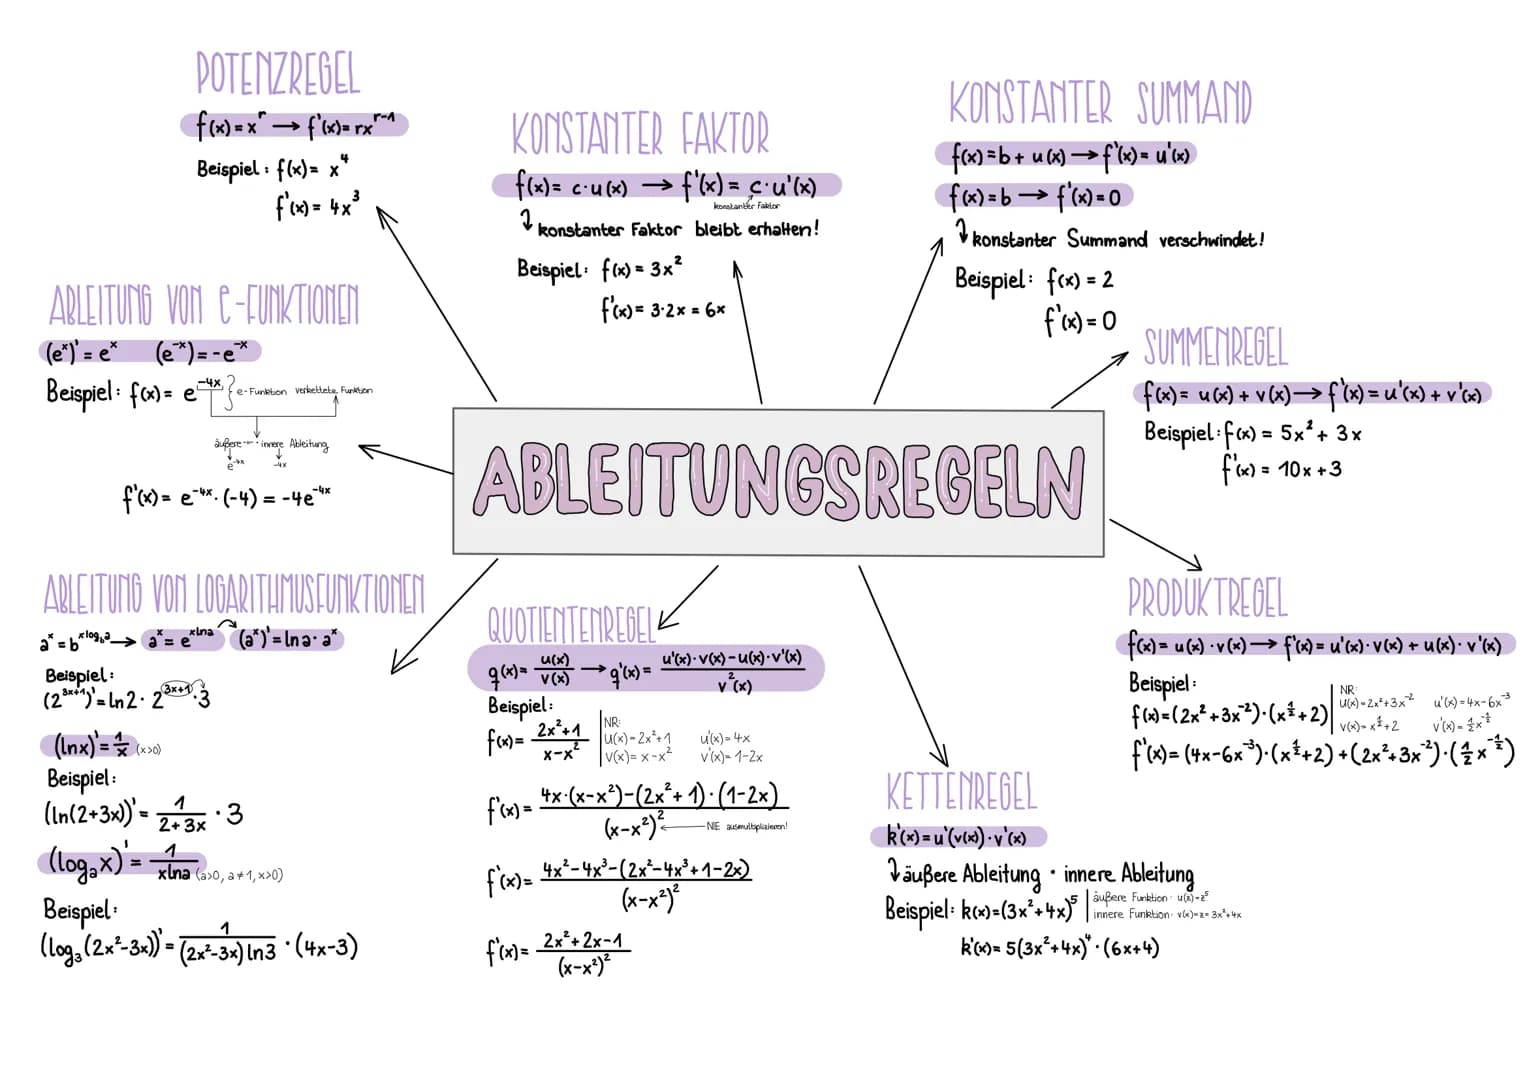 POTENZREGEL
f(x) = x^r → f'(x) = rx^(r-1)
Beispiel: f(x) = x⁴
f'(x) = 4x³
KONSTANTER FAKTOR
f(x) = c·u(x) → f'(x) = c·u'(x)
konstanter Faktor
konstanter Faktor bleibt erhalten!
Beispiel: f(x) = 3x²
f'(x) = 3·2x = 6x
KONSTANTER SUMMAND
f(x) = b + u(x) → f'(x) = u'(x)
f(x) = b → f'(x) = 0
konstanter Summand verschwindet!
Beispiel: f(x) = 2
f'(x) = 0
SUMMENREGEL
f(x) = u(x) + v(x) → f'(x) = u'(x) + v'(x)
Beispiel: f(x) = 5x² + 3x
f'(x) = 10x + 3
ABLEITUNG VON e-FUNKTIONEN
(e^x)' = e^x (e^-x) = -e^-x
Beispiel: f(x) = e^-4x } e-Funktion verkettete Funktion
äußere · innere Ableitung
e^-4x -4x
f'(x) = e^-4x · (-4) = -4e^-4x
ABLEITUNGSREGELN
ABLEITUNG VON LOGARITHMUSFUNKTIONEN
a^x = b^(x log_b a) → a^x = e^(x ln a) (a^x)' = ln a · a^x
Beispiel:
(2^(3x+1))' = ln2 · 2^(3x+1) · 3
(lnx)' = 1/x (x>0)
Beispiel:
(ln(2+3x))' = 1/(2+3x) · 3
(log_a x)' = 1/(x ln a) (a>0, a≠1, x>0)
Beispiel:
(log₃(2x²-3x))' = 1/((2x²-3x) ln3) · (4x-3)
QUOTIENTENREGEL
q(x) = u(x)/v(x) → q'(x) = (u'(x)·v(x) - u(x)·v'(x))/v²(x)
Beispiel:
f(x) = (2x²+1)/(x-x²)
NR:
u(x) = 2x²+1 u'(x) = 4x
v(x) = x-x² v'(x) = 1-2x
f'(x) = (4x·(x-x²)-(2x²+1)·(1-2x))/(x-x²)²
NIE ausmultiplizieren!
f'(x) = (4x²-4x³-(2x²-4x³+1-2x))/(x-x²)²
f'(x) = (2x²+2x-1)/(x-x²)²
KETTENREGEL
k'(x) = u'(v(x))·v'(x)
äußere Ableitung · innere Ableitung
Beispiel: k(x) = (3x²+4x)⁵
äußere Funktion: u(z)=z⁵
innere Funktion: v(x)=z=3x²+4x
k'(x) = 5(3x²+4x)⁴ · (6x+4)
PRODUKTREGEL
f(x) = u(x)·v(x) → f'(x) = u'(x)·v(x) + u(x)·v'(x)
Beispiel:
f(x) = (2x²+3x⁻²)·(x^½+2)
NR:
u(x) = 2x²+3x⁻² u'(x) = 4x-6x⁻³
v(x) = x^½+2 v'(x) = ½x^-½
f'(x) = (4x-6x⁻³)·(x^½+2)+(2x²+3x⁻²)·(½x^-½)